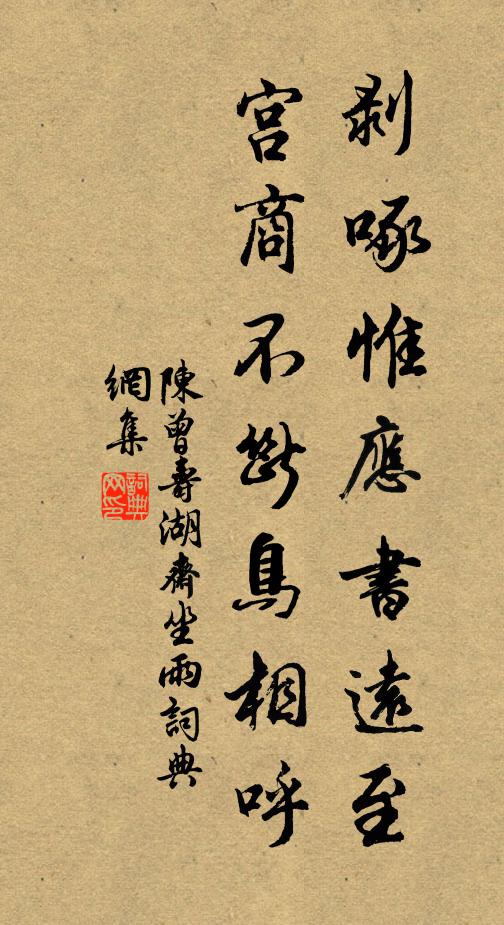 剝啄惟應書遠至
宮商不斷鳥相呼
陳曾壽湖齋坐雨詞典
網集
詞典網印